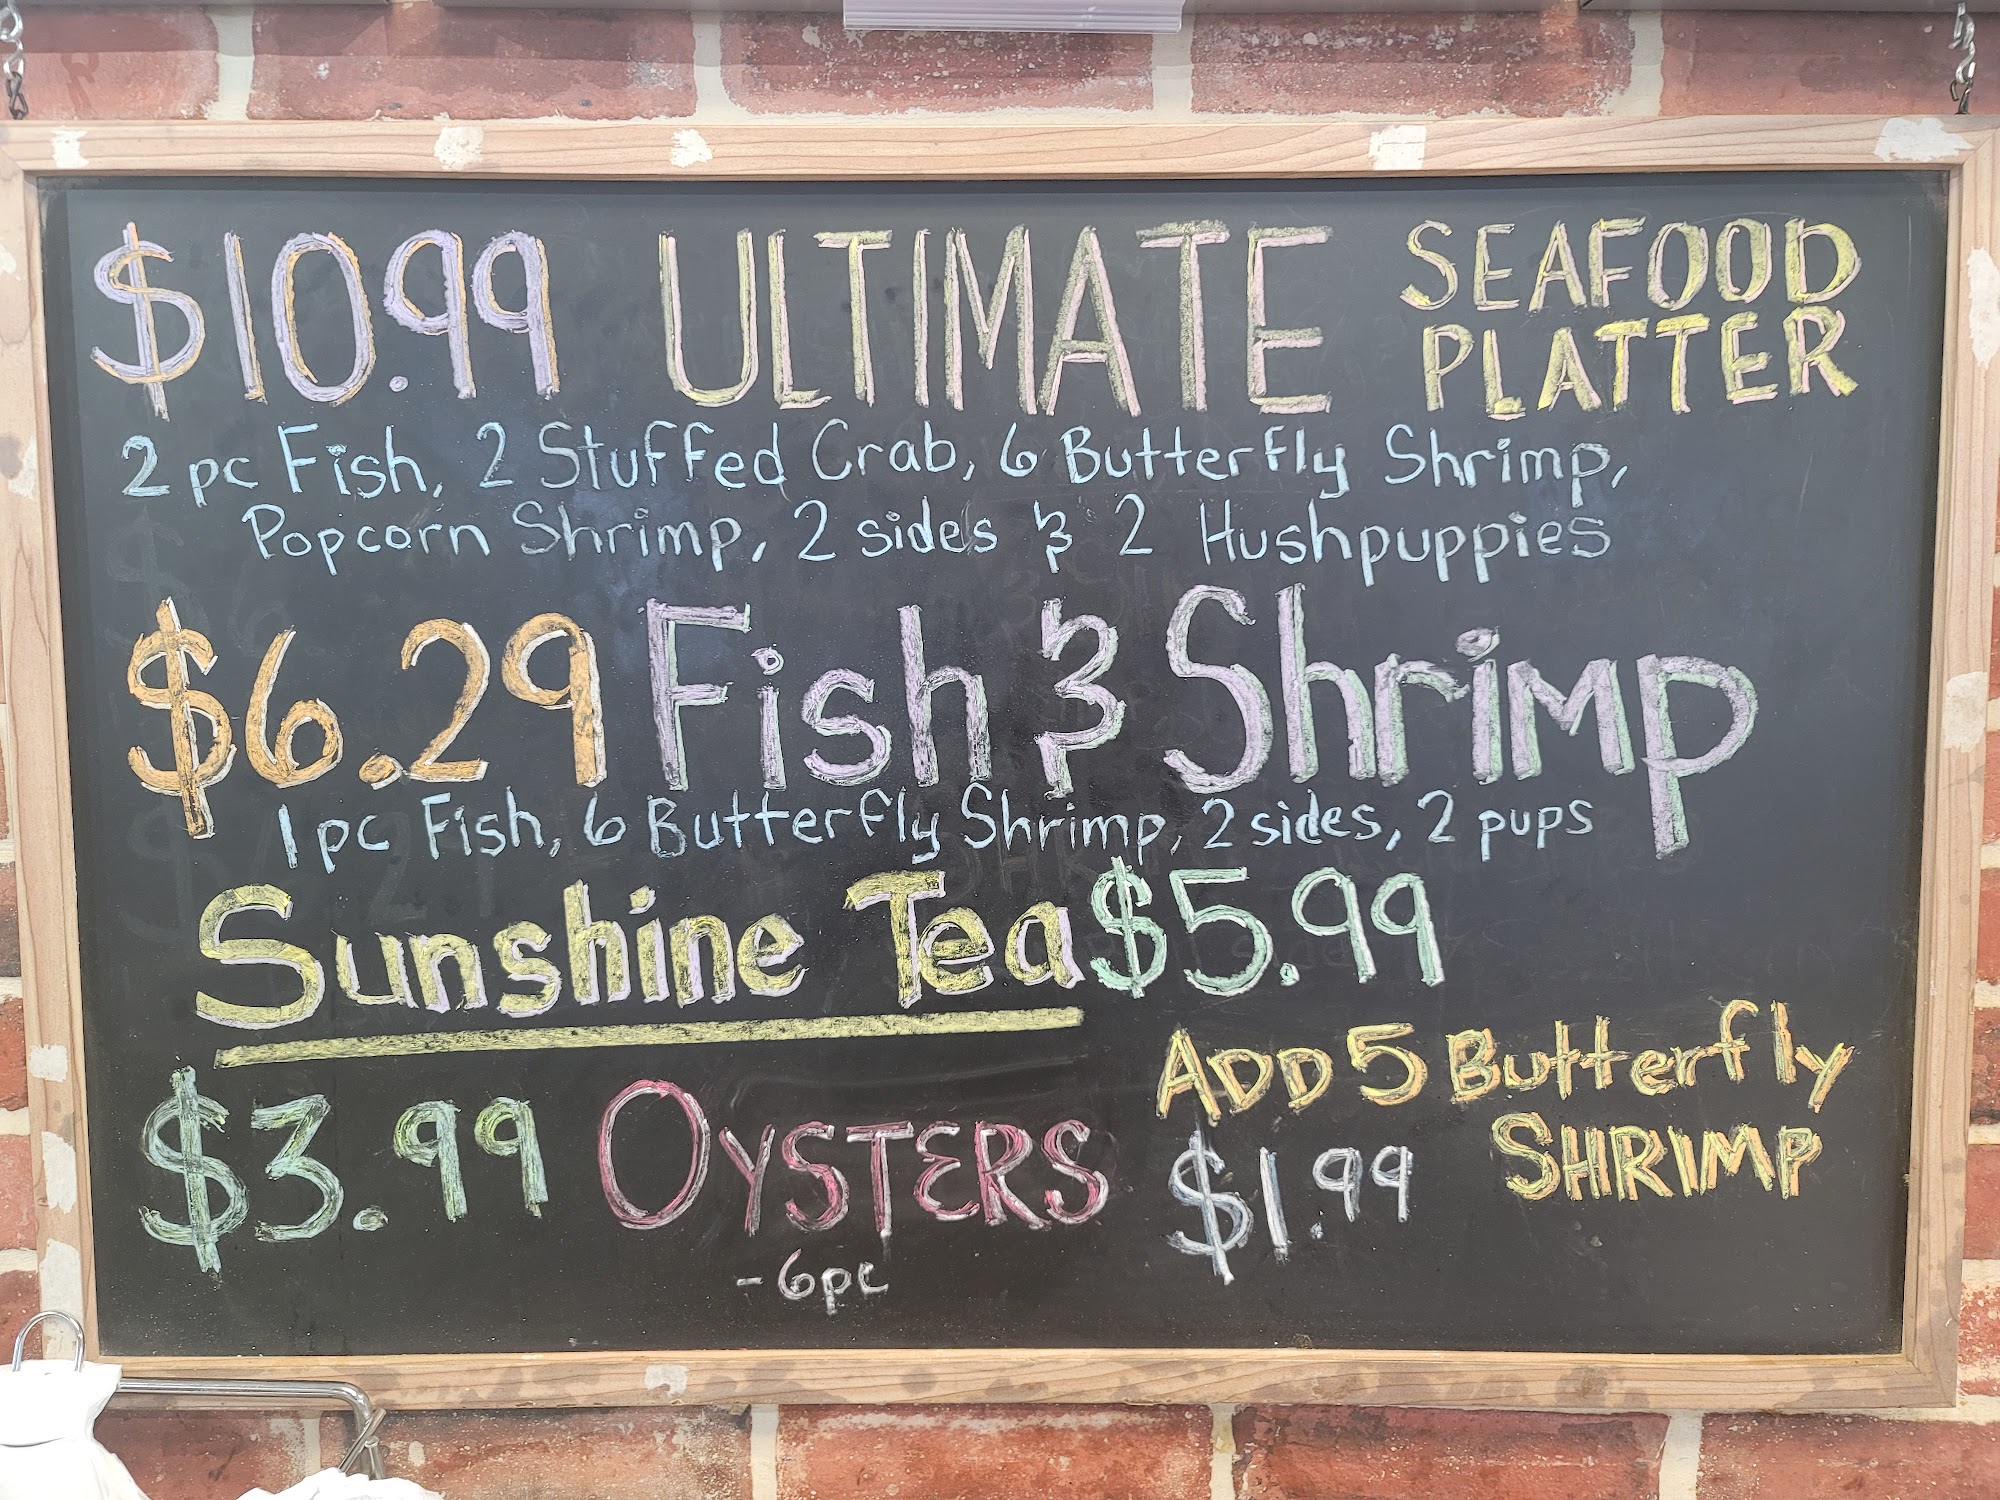 $10.99 ULTIMATE SEAFOOD PLATTER
2 pc Fish, 2 Stuffed Crab, 6 Butterfly Shrimp,
Popcorn Shrimp, 2 sides & 2 Hushpuppies
$6.29 Fish & Shrimp
1 pc Fish, 6 Butterfly Shrimp, 2 sides, 2 pups
Sunshine Tea $5.99
$3.99 OYSTERS
-6pc
ADD 5 Butterfly
SHRIMP
$1.99